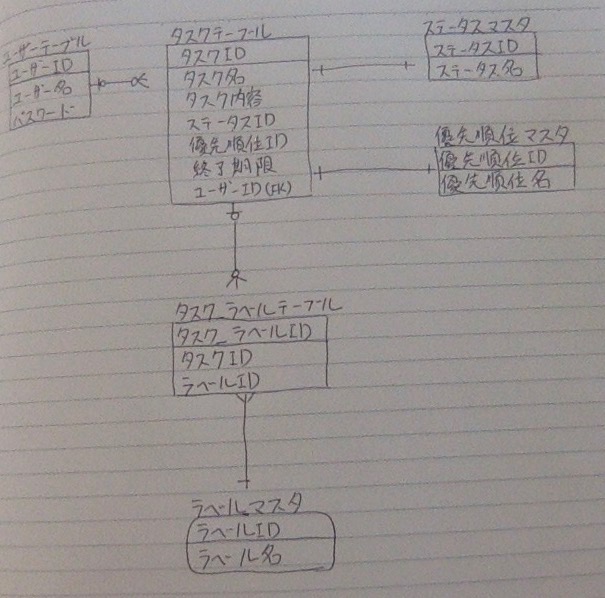 ユーザーテーブル
ユーザーID
ユーザー名
パスワード
タスクテーブル
タスクID
タスク名
タスク内容
ステータスID
優先順位ID
終了期限
ユーザーID(FK)
ステータスマスタ
ステータスID
ステータス名
優先順位マスタ
優先順位ID
優先順位名
タスク_ラベルテーブル
タスク_ラベルID
タスクID
ラベルID
ラベルマスタ
ラベルID
ラベル名